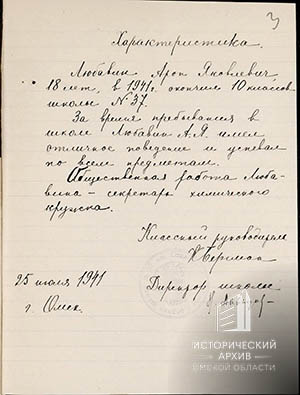 3
Характеристика.
Любавин Арон Яковлевич,
18 лет, в 1941г. окончил 10 классов
школы №37.
За время пребывания в
школе Любавин А.Я. имел
отличное поведение и успевал
по всем предметам.
Общественная работа Люба-
вина - секретарь химического
кружка.
Классный руководитель
25 июля 1941
Директор школы:
г. Омск.
ИСТОРИЧЕСКИЙ
АРХИВ
ОМСКОЙ ОБЛАСТИ